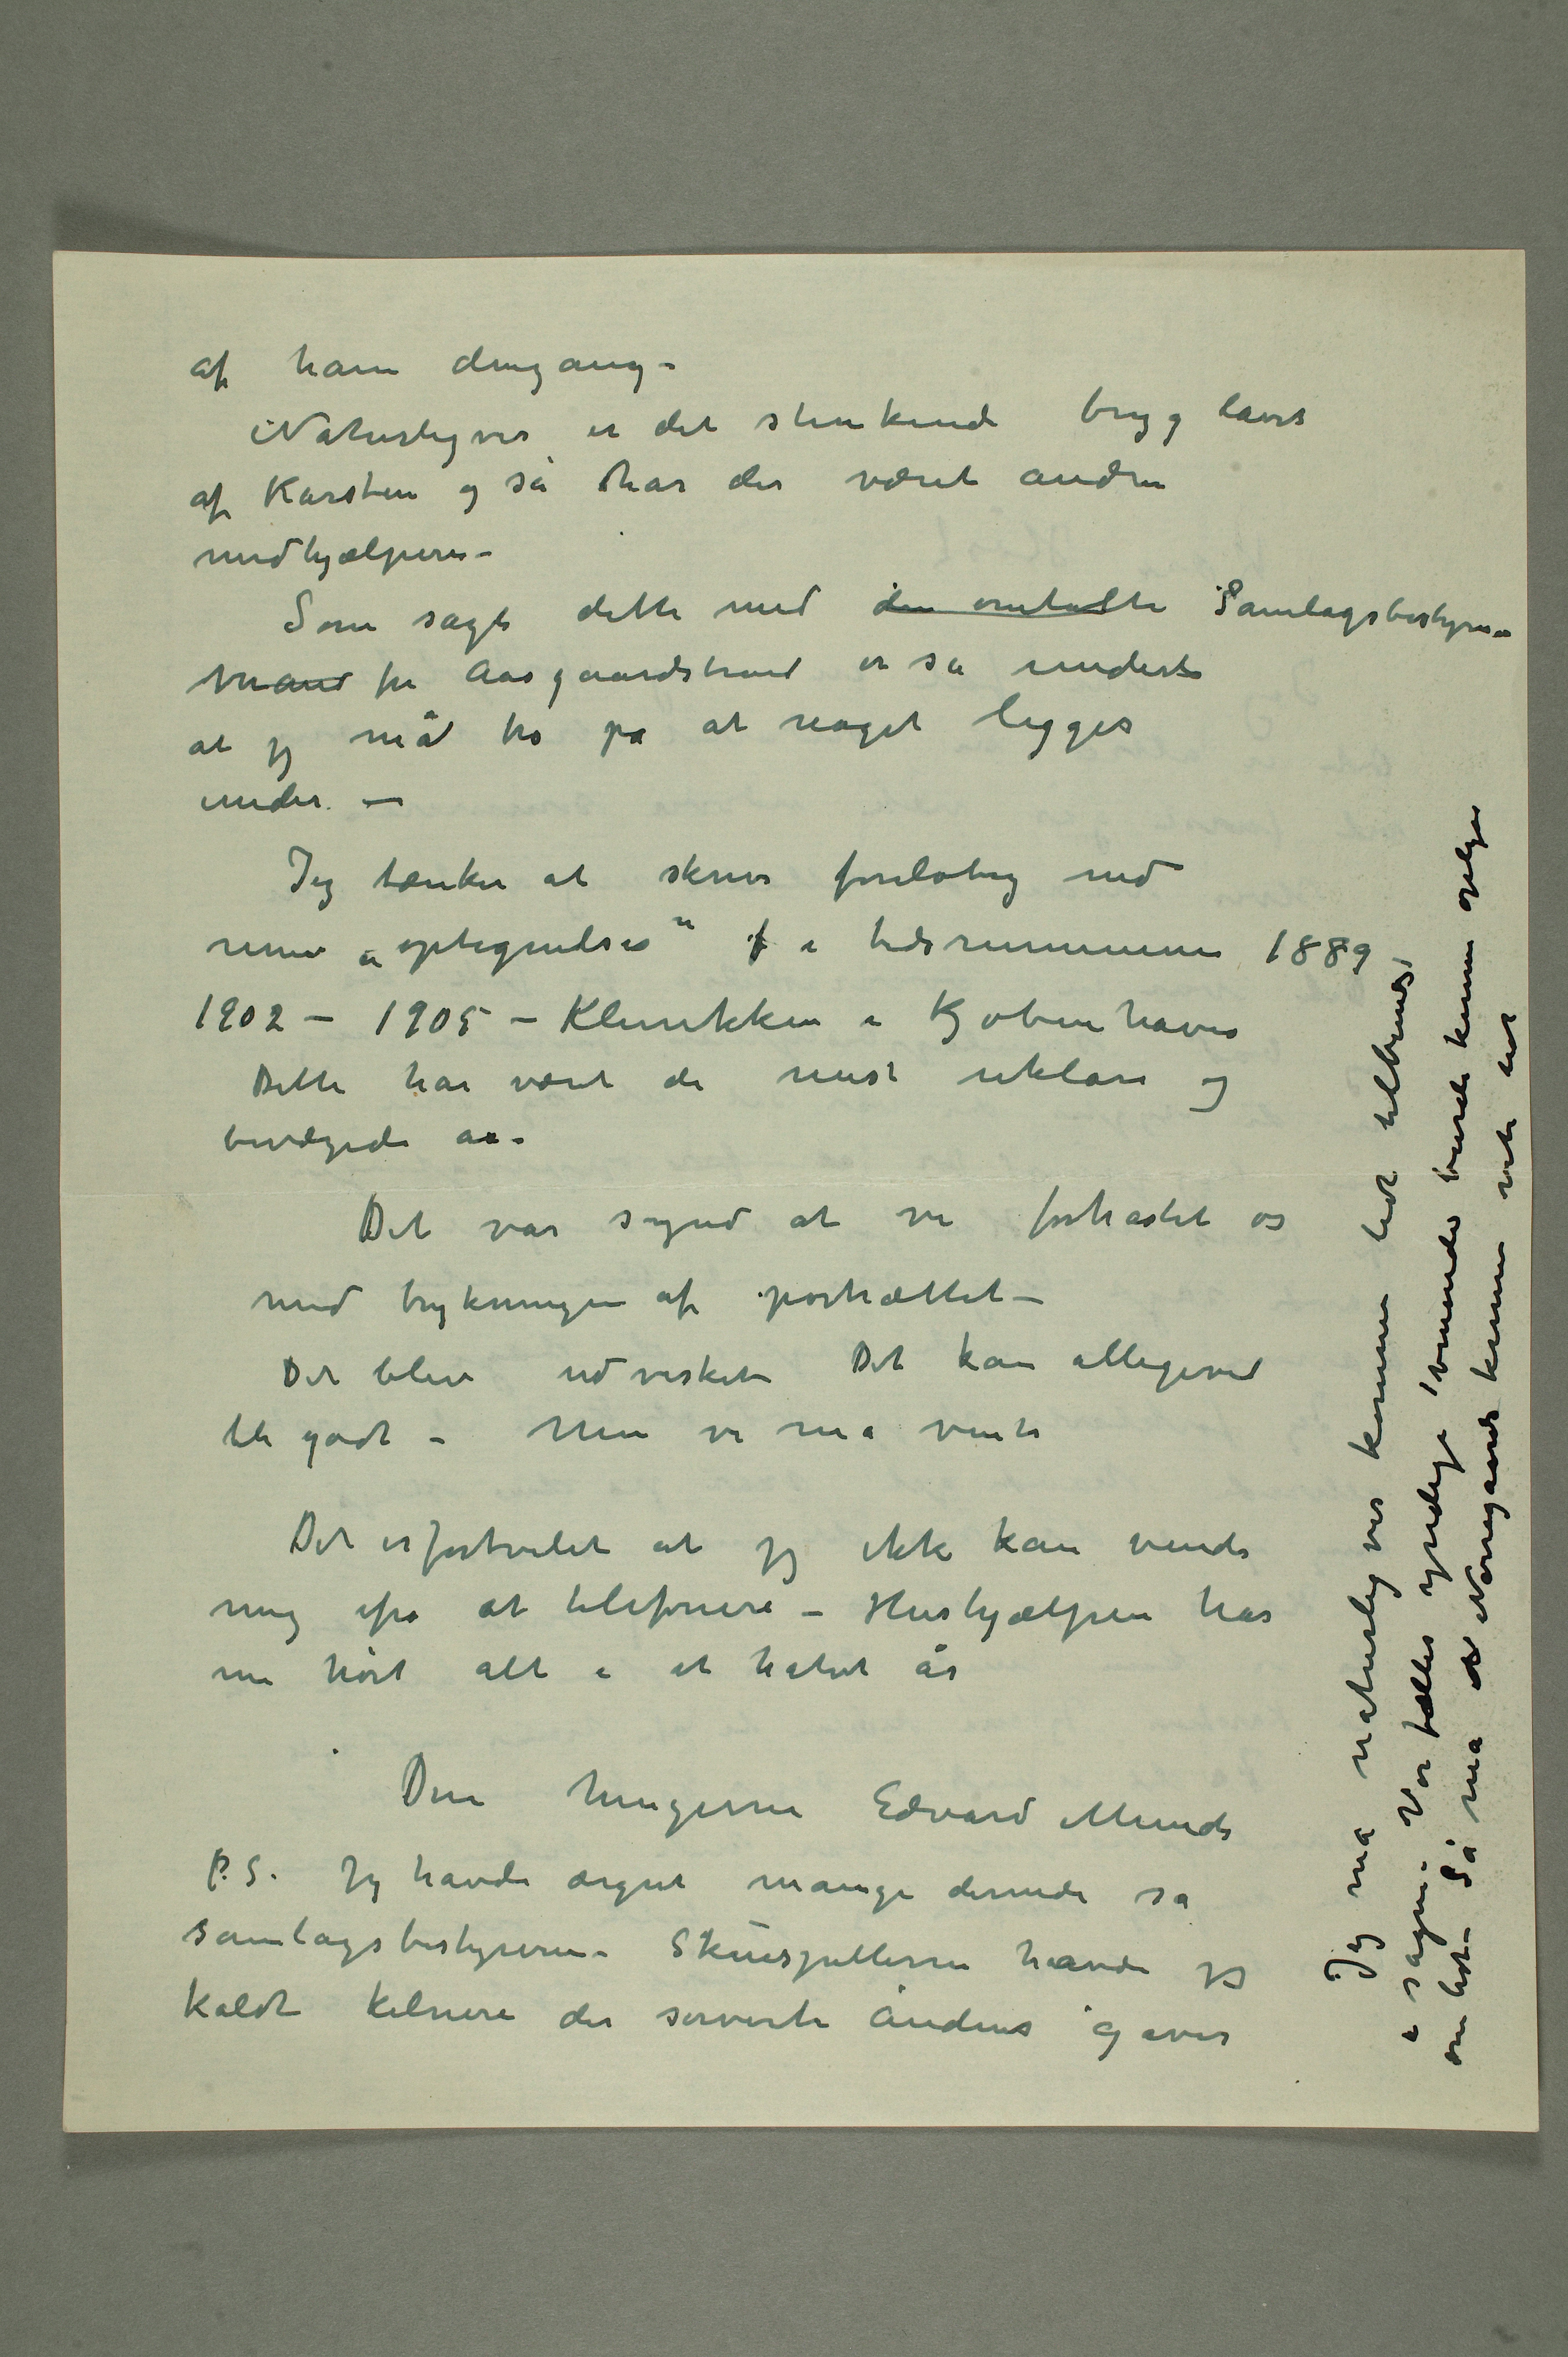 af ham dengang –
Naturligvis er det stinkende bryg lavet
af Karsten og så har der været andre
medhjælpere –
Som sagt dette med den omtalte Samlagsbestyrer
Mand fra Aasgaardstrand er så underlig
at jeg må tro på at noget ligger
under. –
Jeg tænker at skrive foreløbig ned
mine „optegnelser" f i tidsrummene 1889 –
1902 – 1905 – Klinikken i Kjøbenhavn
Dette har været de mest uklare og
bevægede år.
Det var synd at vi forhastet os
med trykningen af portrættet –
Det blev udvisket. Det kan alligevel
bli godt – Men vi må vente
Det er fortvilet at jeg ikke kan vende
mig ifra at telefonere – Hushjælpen har
nu hørt alt i et halvt år
Din hengivne Edvard Munch
P.S. Jeg havde ærgret mange dernede så
samlagsbestyreren. Skuespillerne havde jeg
kaldt kelnere der serverte åndens gaver
Jeg må naturligvis komme lidt tilbunds
i sagen. Vor fælles yndige veninde burde kunne oplyse
om lidt. Så må Nørregaard kunne vide lidt